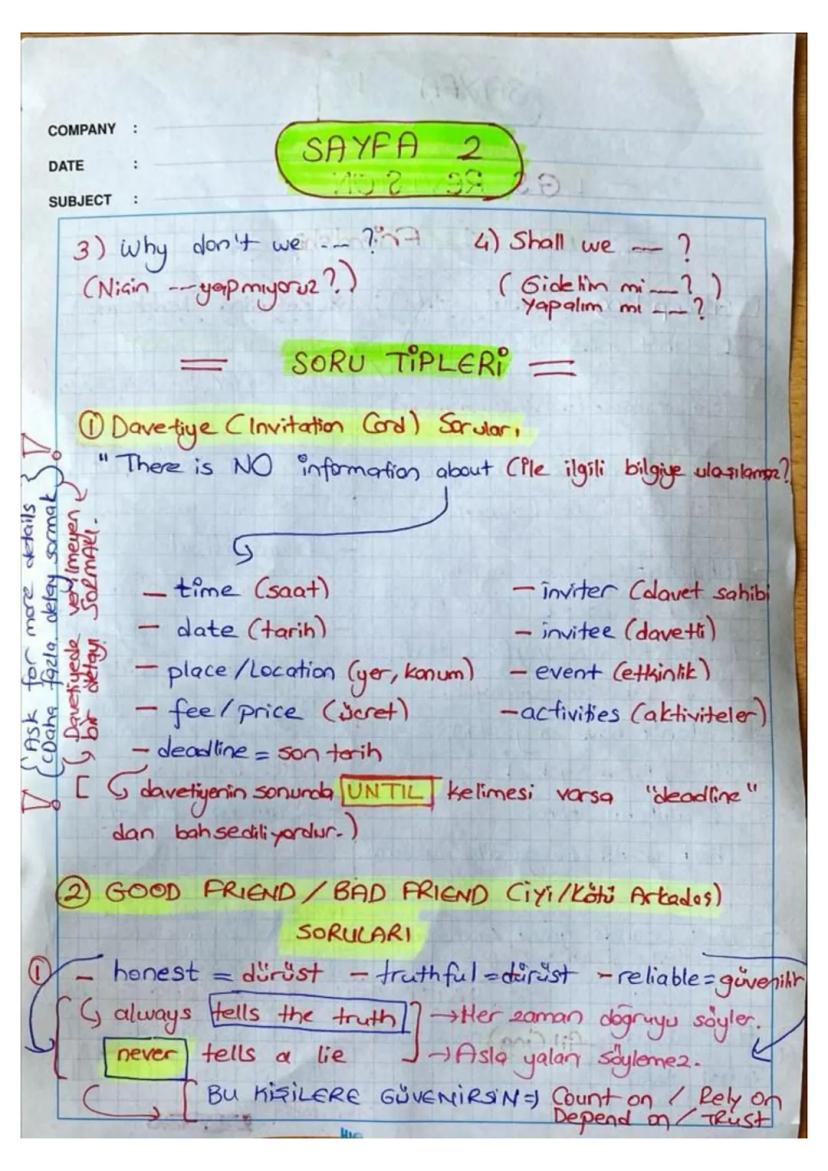 COMPANY :
DATE :
SUBJECT :
SAYFA 2
3) Why don't we --- ?
(Niçin --- yapmıyoruz?)
4) Shall we --- ?
( Gidelim mi --- ? )
Yapalım mı --- ?
= SORU TİPLERİ =
① Davetiye (Invitation Card) Soruları
" There is NO information about (ile ilgili bilgiye ulaşılamaz?
— time (saat)
— date (tarih)
— place / Location (yer, konum)
— fee / price (ücret)
— deadline = son tarih
— inviter (davet sahibi
— invitee (davetli)
— event (etkinlik)
— activities (aktiviteler)
Ask for more details
(Daha fazla detay sormak)
Davetiyede verilmeyen
bir detayı SORMAK!.
[ davetiyenin sonunda UNTIL kelimesi varsa "deadline"
dan bahsediliyordur.)
② GOOD FRIEND / BAD FRIEND (iyi/Kötü Arkadaş)
SORULARI
① — honest = dürüst — truthful = dürüst — reliable = güvenilir
always tells the truth ] → Her zaman doğruyu söyler.
never tells a lie → Asla yalan söylemez.
[ BU KİŞİLERE GÜVENİRSİN ⇒ Count on / Rely on
Depend on / TRUST